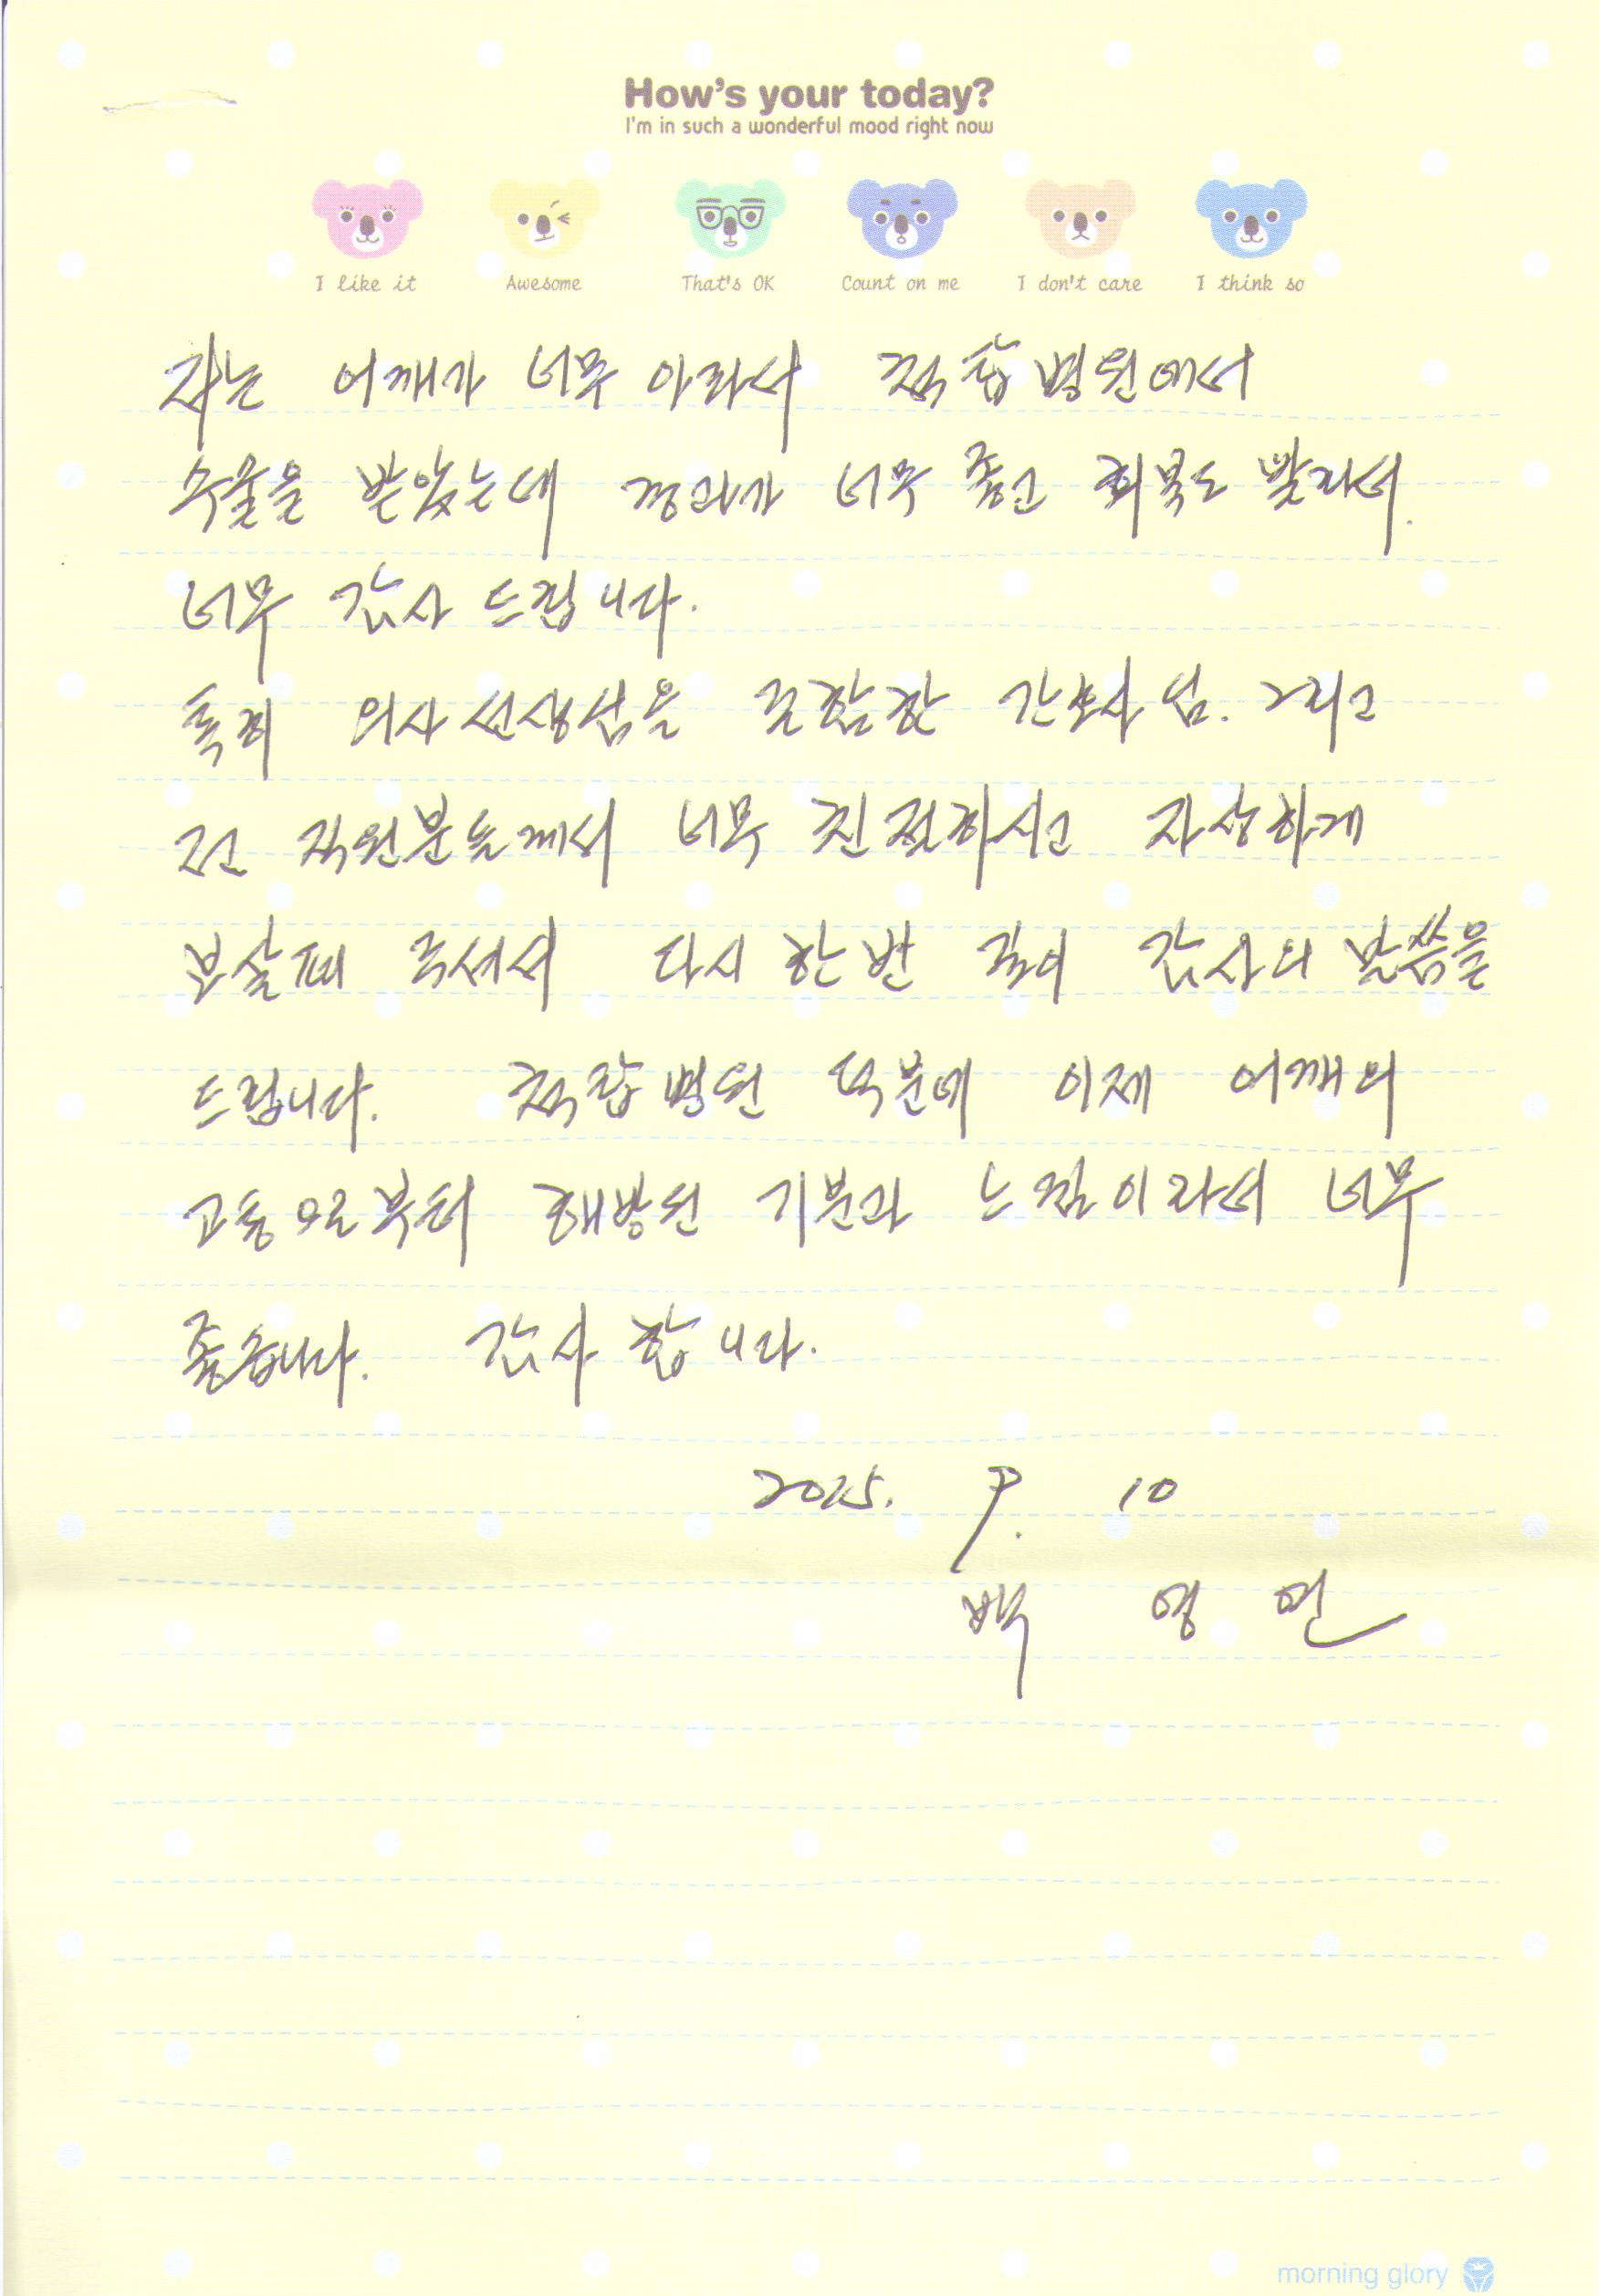 How's your today?
I'm in such a wonderful mood right now
I like it Awesome That's OK Count on me I don't care I think so
저는 어깨가 너무 아파서 척탑병원에서
수술을 받았는데 경과가 너무 좋고 회복도 빨라서.
너무 감사 드립니다.
특히 의사선생님을 포함한 간호사님. 그리고
전 직원분들께서 너무 친절하시고 자상하게
보살펴 주셔서 다시 한번 깊이 감사의 말씀을
드립니다. 척탑병원 덕분에 이제 어깨의
고통으로부터 해방된 기분과 느낌이라서 너무
좋습니다. 감사 합니다.
2025. 9. 10
백 영
morning glory